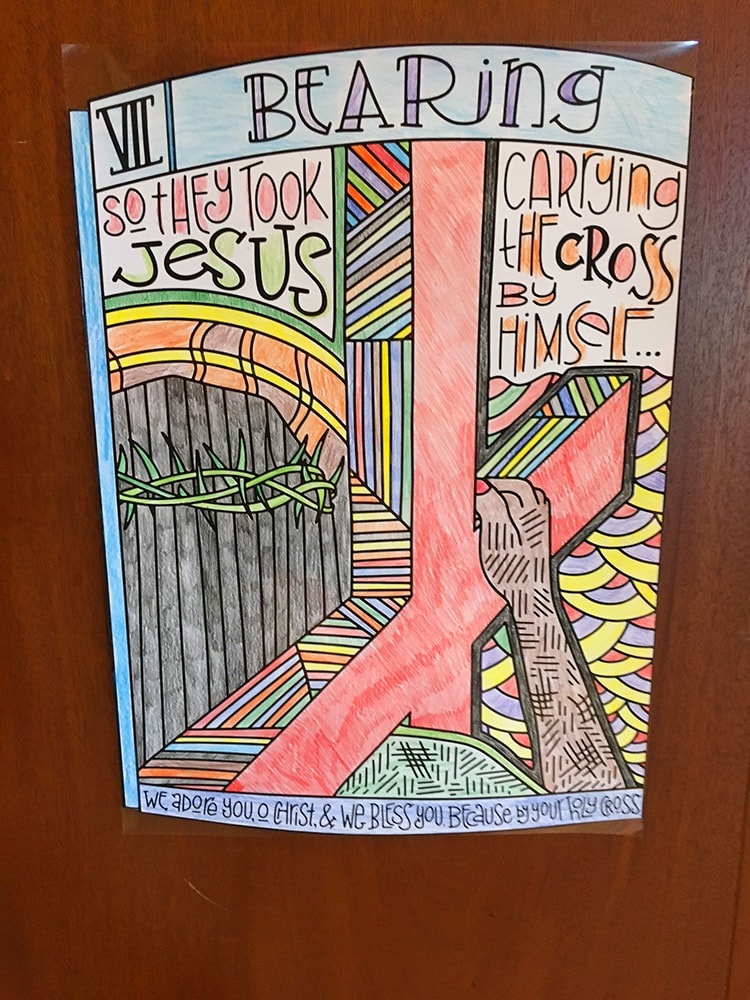 VII BEARING
SO THEY TOOK
JESUS
CARRYING
THE CROSS
BY
HIMSELF...
WE ADORE YOU, O CHRIST, & WE BLESS YOU. BECAUSE BY YOUR HOLY CROSS